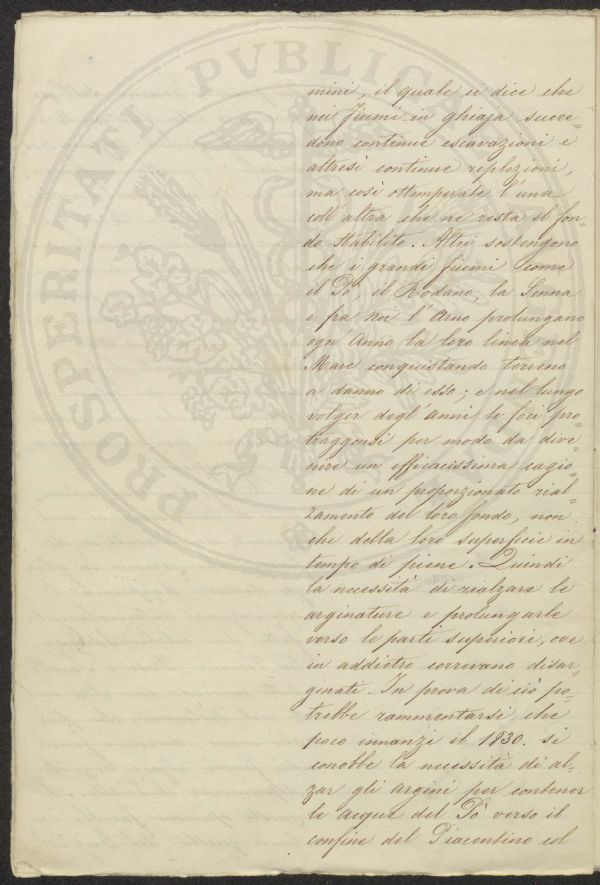 PROSPERITATI PVBLICAE
mini, il quale ci dice che
nei fiumi in ghiaja succe=
dono continue escavazioni e
altresì continue replezioni,
ma così ottemperate l'una
coll'altra che ne resta il fon=
do stabilito. Altri sostengono
che i grandi fiumi come
il Pò, il Rodano, la Senna
e fra noi l'Arno prolungano
ogn'Anno la loro linea nel
Mare conquistando terreno
a danno di esso; e nel lungo
volger degl'anni le foci pro=
traggonsi per modo da dive=
nire un efficacissima cagio=
ne di un proporzionato rial=
zamento del loro fondo, non
che della loro superficie in
tempo di piene. Quindi
la necessità di rialzare le
arginature e prolungarle
verso le parti superiori, ove
in addietro correvano disar=
ginati. In prova di ciò po=
trebbe rammentarsi che
poco innanzi il 1830. si
conobbe la necessità di al=
zar gli argini per contener
le acque del Pò verso il
confine del Piacentino col